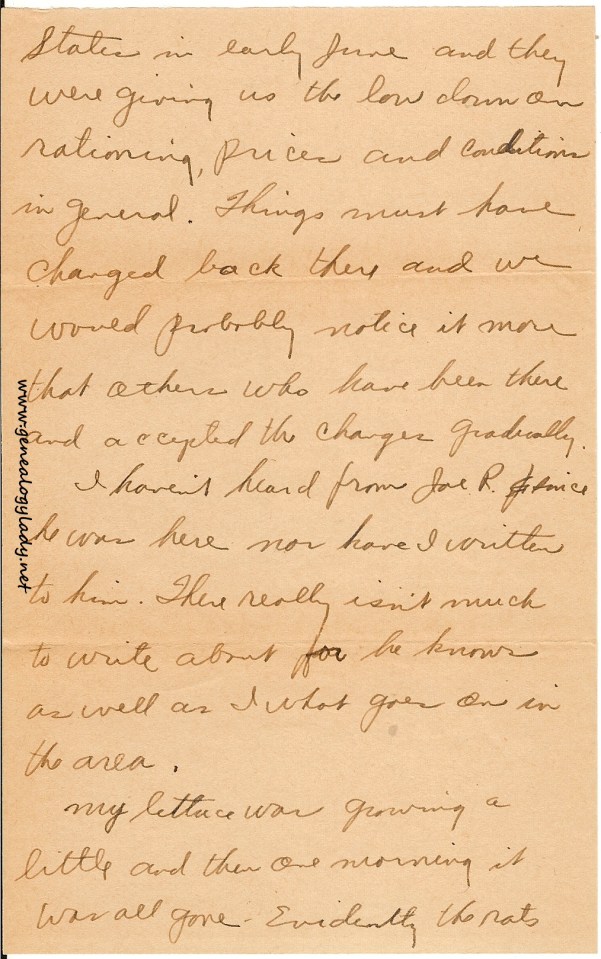 States in early June and they
were giving us the low down on
rationing, prices and conditions
in general. Things must have
changed back there and we
would probably notice it more
that others who have been there
and accepted the changes gradually.
I haven't heard from Joe P. since
he was here nor have I written
to him. There really isn't much
to write about for he knows
as well as I what goes on in
the area.
My lettuce was growing a
little and then one morning it
was all gone - Evidently the rats
www.genealogylady.net